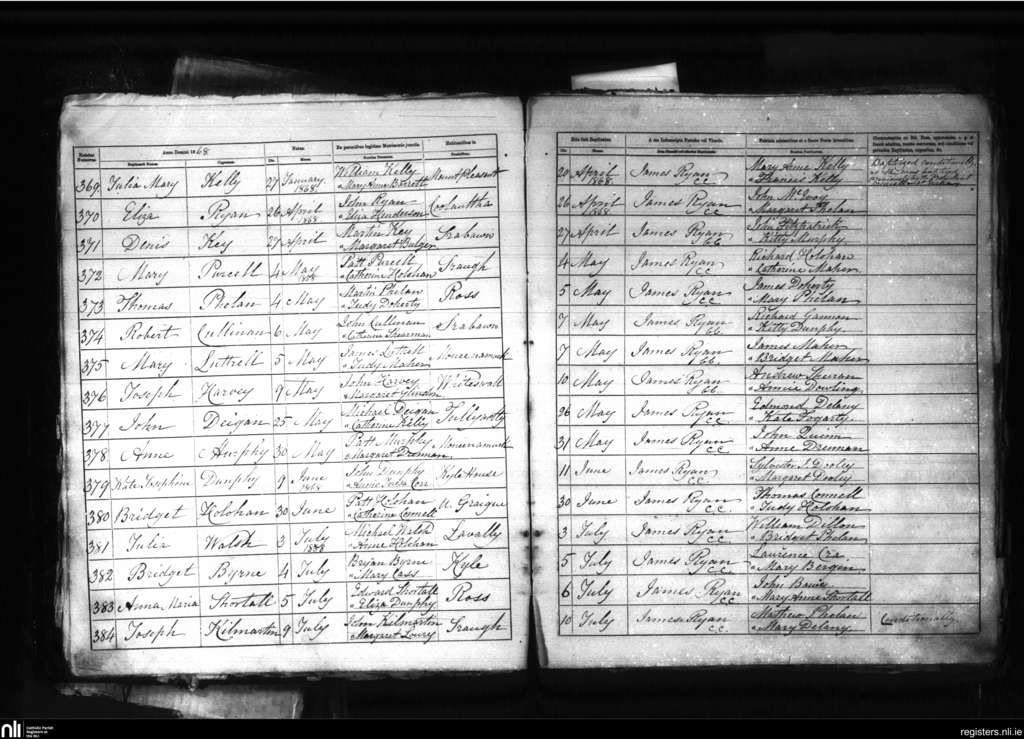 Anno Domini 1868
369 Julia Mary Kelly 27 January 1868 William Kelly Mount pleasant
" Mary Anne
20 April 1868 James Ryan C.C. Mary Anne Kelly
" Frances Kelly
Baptized conditionally
370 Eliza Ryan 26 April 1868 John Ryan
" Eliza Henderson
26 April 1868 James Ryan C.C. John McEvoy
" Margaret Phelan
371 Denis Key 27 April Martin Key Srabawn
" Margaret Bulger
27 April James Ryan C.C. John Fitzpatrick
" Kitty Murphy
372 Mary Purcell 4 May 1868 Patt Purcell Sraugh
" Catherine Holohan
4 May James Ryan C.C. Richard Holohan
" Catherine Maher
373 Thomas Phelan 4 May Martin Phelan Ross
" Judy Doherty
5 May James Ryan C.C. James Doherty
" Mary Phelan
374 Robert Cullinan 6 May John Cullinan Srabawn
" Catherine
7 May James Ryan C.C. Richard Gannon
" Kitty Dunphy
375 Mary Luttrell 5 May James Luttrell Moneenamuck
" Judy Maher
7 May James Ryan C.C. James Maher
" Bridget Maher
376 Joseph Harvey 9 May John Harvey Whiteswall
" Margaret
10 May James Ryan C.C. Andrew
" Annie Dowling
377 John Deigan 25 May Michael Deigan
" Catherine Kelly
26 May James Ryan C.C. Edmond Delany
" Kate Fogarty
378 Anne Murphy 30 May Patt Murphy Moneenamuck
" Margaret Drennan
31 May James Ryan C.C. John Quinn
" Anne Drennan
379 Kate Josephine Dunphy 9 June 1868 John Dunphy Kyle House
11 June James Ryan C.C. Sylvester J. Dooley
" Margaret Dooley
380 Bridget Holohan 30 June Patt Holohan U. Graigue
" Catherine Connell
30 June James Ryan C.C. Thomas Connell
" Judy Holohan
381 Julia Walsh 3 July 1868 Michael Walsh Lavally
" Anne Holohan
3 July James Ryan C.C. William Dillon
" Bridget Phelan
382 Bridget Byrne 4 July Bryan Byrne Kyle
" Mary Cass
5 July James Ryan C.C. Laurence
" Mary Bergin
383 Anna Maria Shortall 5 July Edward Shortall Ross
" Eliza Dunphy
6 July James Ryan C.C. John
" Mary Anne Shortall
384 Joseph Kilmartin 9 July John Kilmartin Sraugh
" Margaret Lowry
10 July James Ryan C.C. Mathew Phelan Conditionally
" Mary Delany
nli Catholic Parish Registers at the NLI
registers.nli.ie